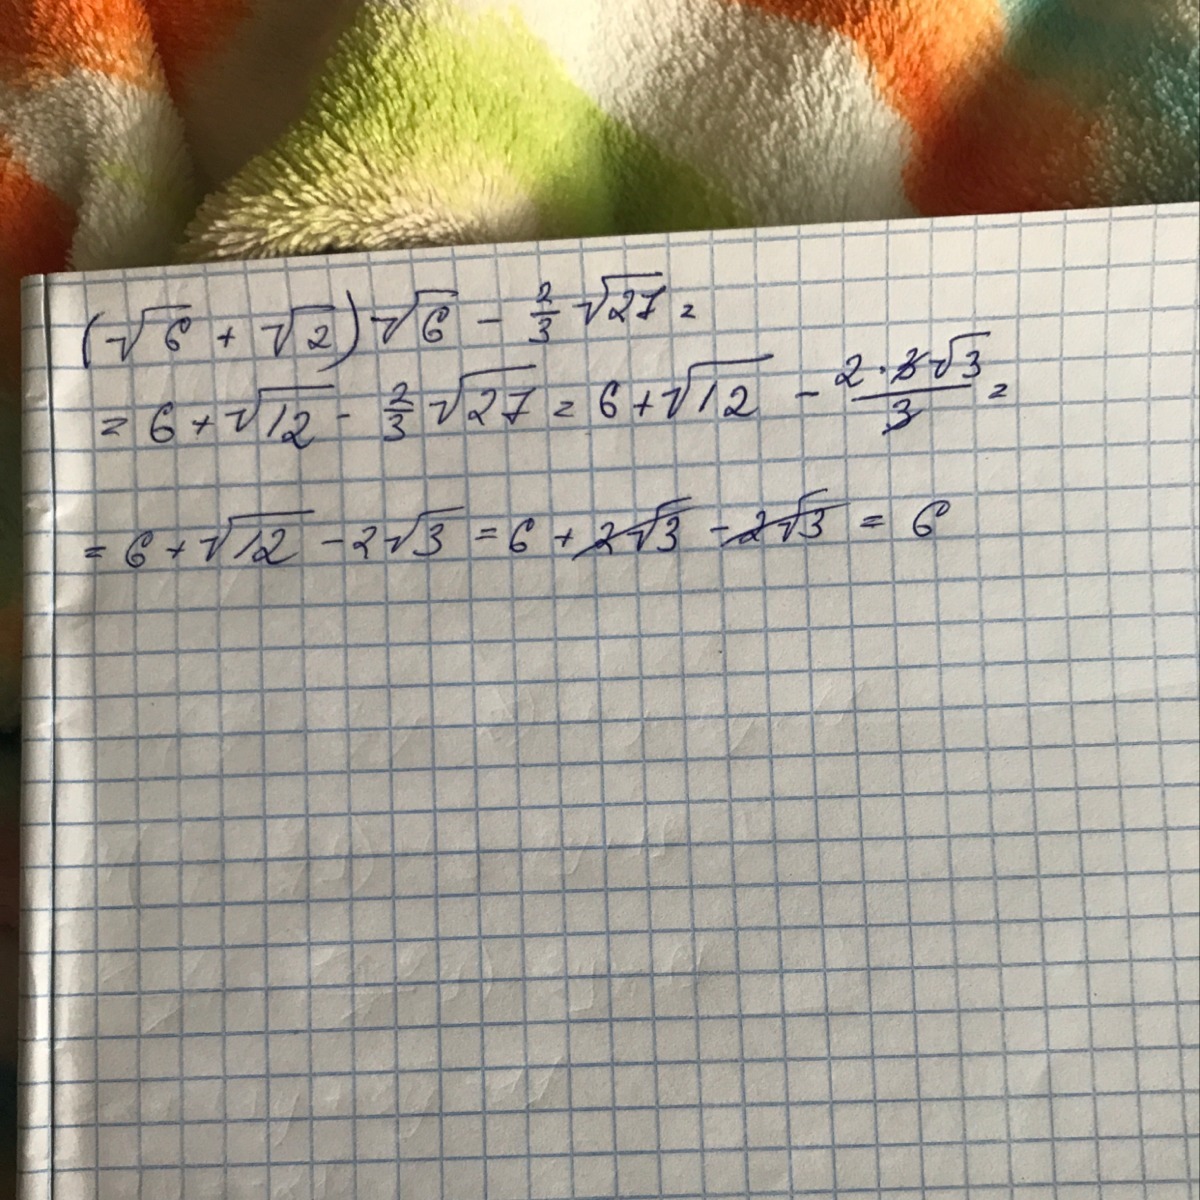 (√6 + √2)√6 - 2/3 √27 =
= 6 + √12 - 2/3 √27 = 6 + √12 - 2·3√3/3 =
= 6 + √12 - 2√3 = 6 + 2√3 - 2√3 = 6